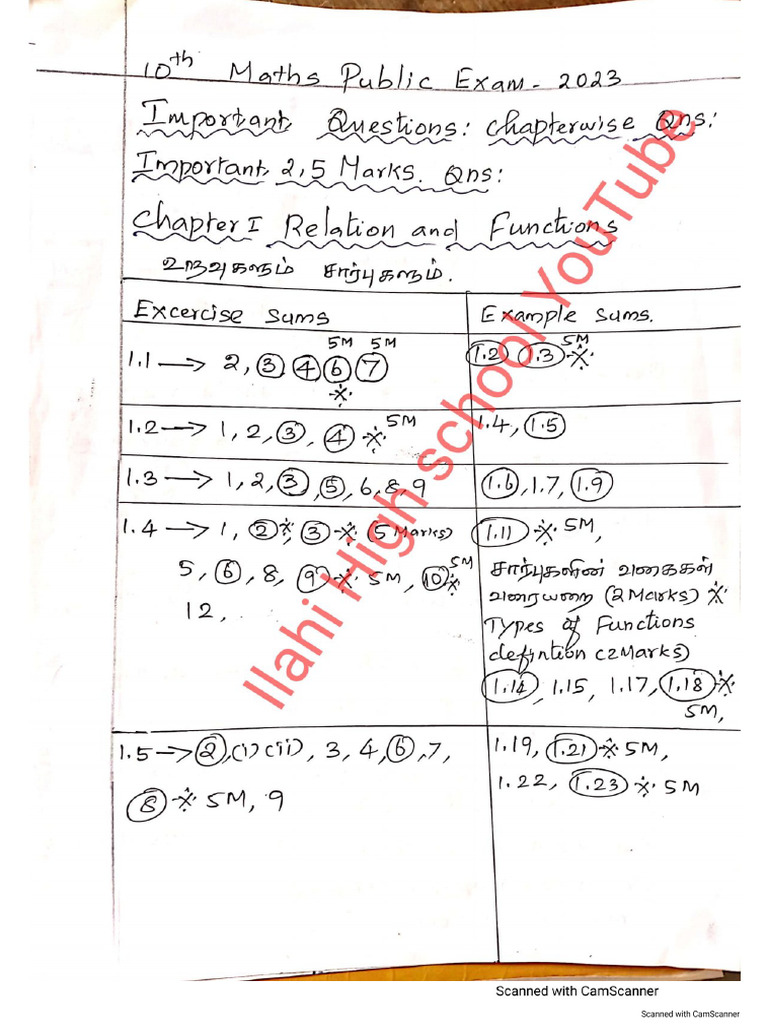 10th Maths Public Exam - 2023
Important Questions: Chapterwise Qns:
Important 2,5 Marks. Qns:
Chapter I Relation and Functions
உறவுகளும் சார்புகளும்.
Excercise Sums
Example Sums.
5M 5M
1.1 → 2, 3 4 6 7
※
5M
1.2 1.3 ※
1.2 → 1, 2, 3, 4 ※ 5M
1.4, 1.5
1.3 → 1, 2, 3, 5, 6, 8, 9
1.6, 1.7, 1.9
1.4 → 1, 2 ※, 3 ※ (5 Marks)
5, 6, 8, 9 ※ 5M, 10 ※ 5M
12,
1.11 ※ 5M,
சார்புகளின் வகைகள்
வரையறை (2 Marks) ※
Types of Functions
defintion (2Marks)
1.14, 1.15, 1.17, 1.18 ※
5M,
1.5 → 2, (i) (ii), 3, 4, 6, 7,
8 ※ 5M, 9
1.19, 1.21 ※ 5M,
1.22, 1.23 ※ 5M
Ilahi High school YouTube
Scanned with CamScanner
Scanned with CamScanner